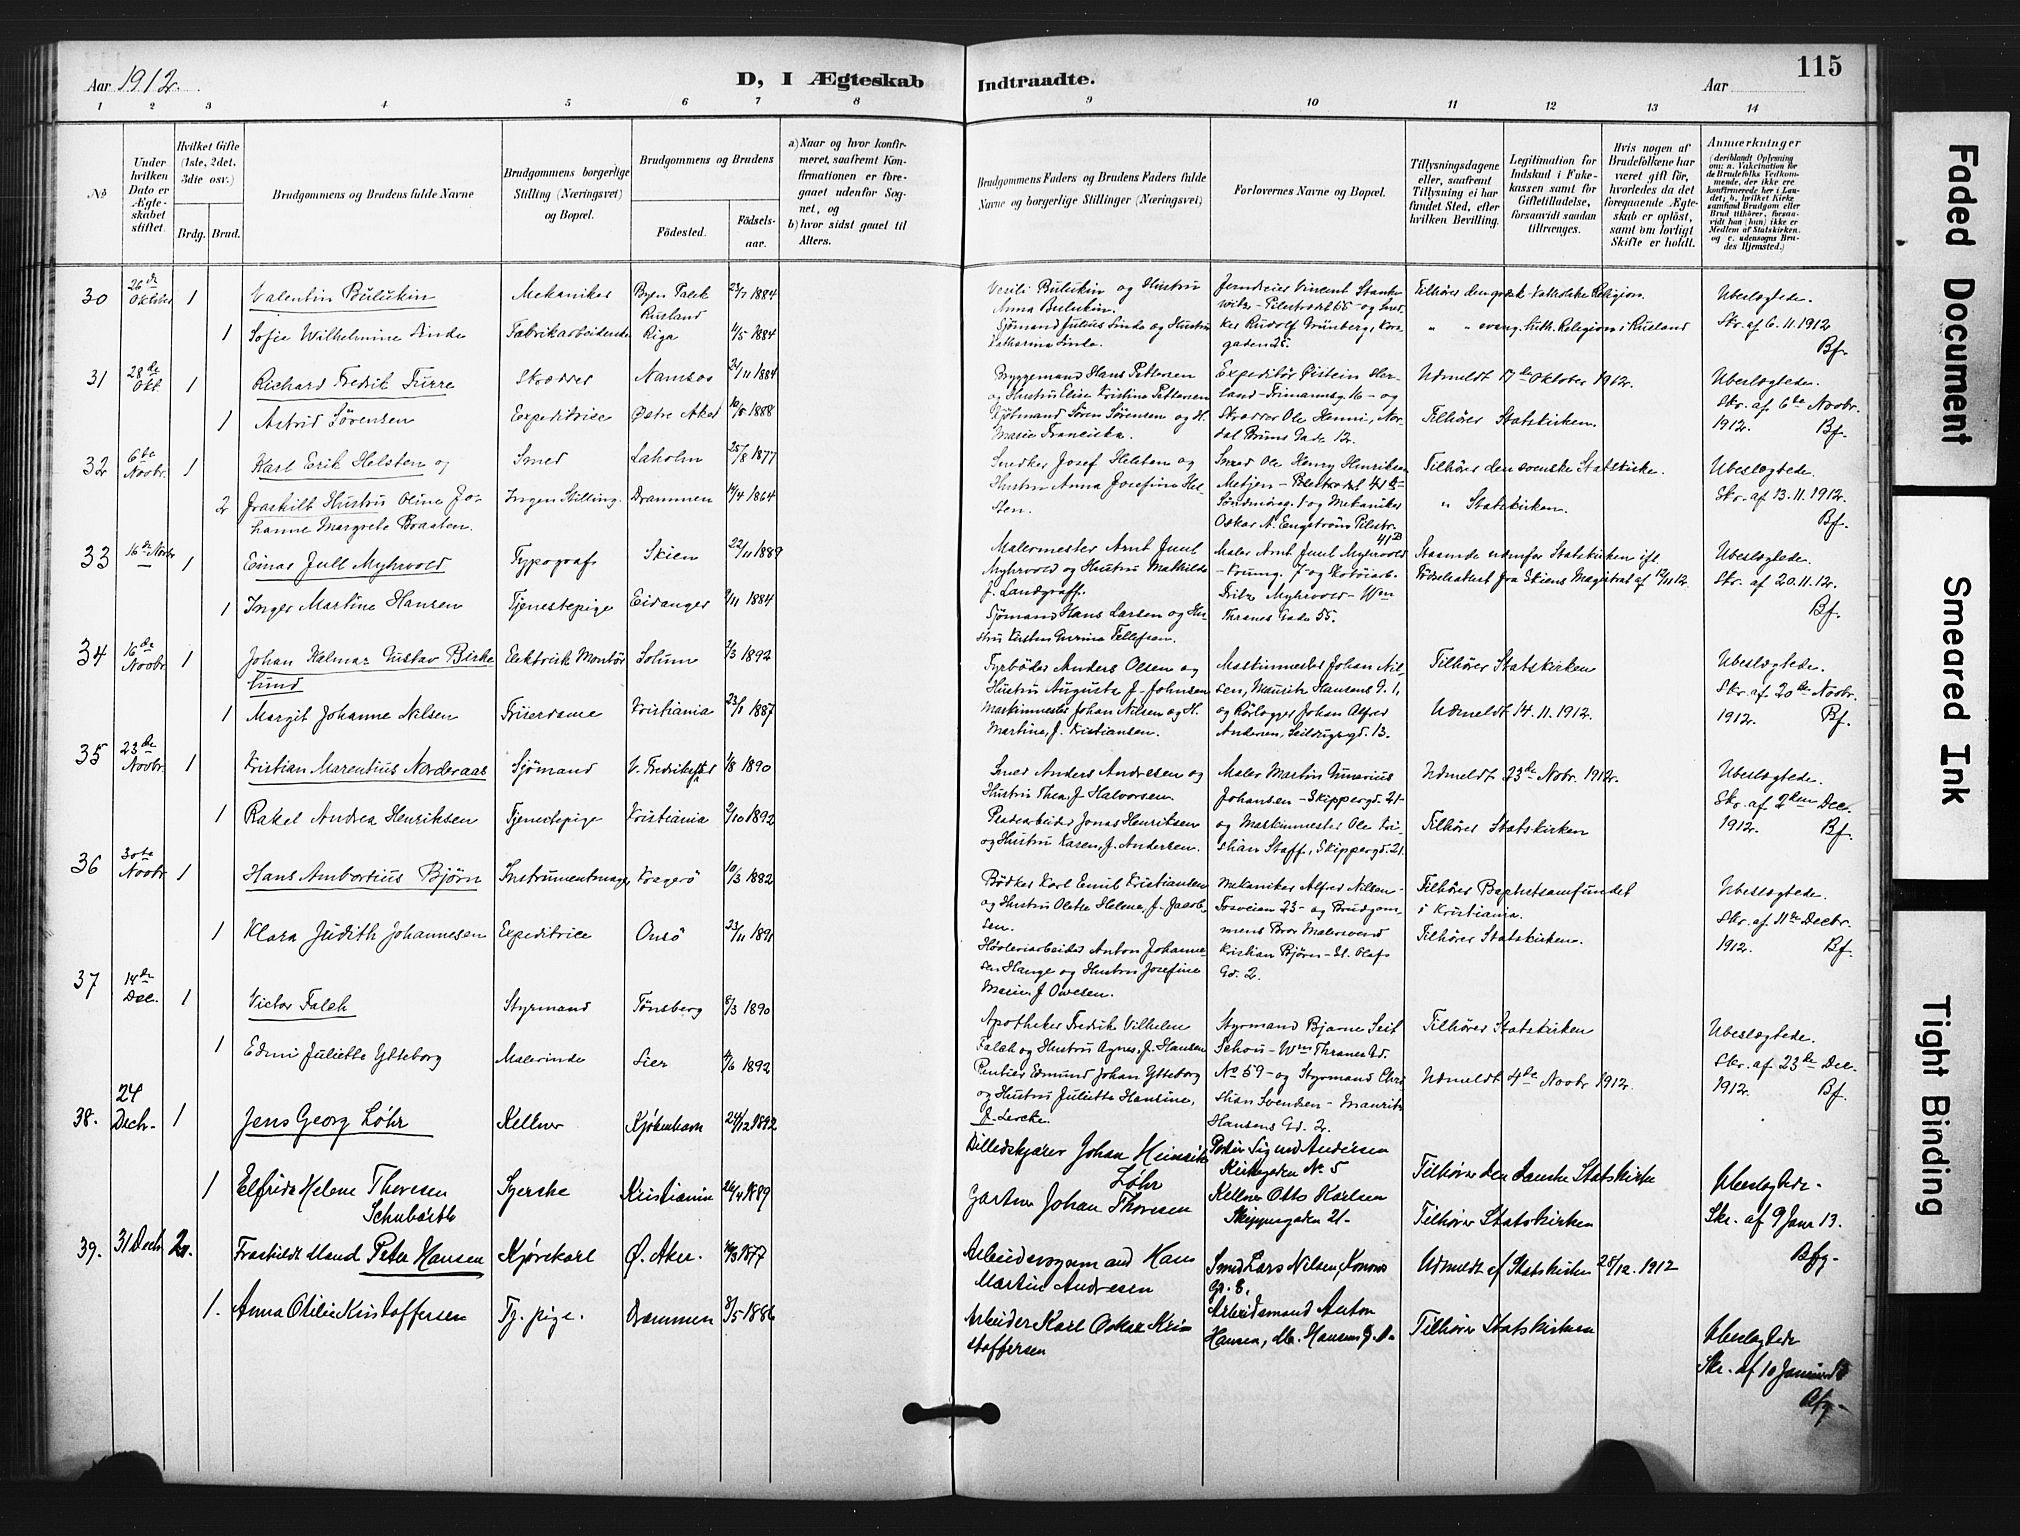 Aar 1912.
D, I Ægteskab
Indtraadte.
Aar
115
1 2 3 4 5 6 7 8 9 10 11 12 13 14
No
Under hvilken Dato er Ægteskabet stiftet.
Hvilket Gifte (1ste, 2det, 3die osv.)
Brdg. Brud.
Brudgommens og Brudens fulde Navne
Brudgommens borgerlige Stilling (Næringsvei) og Bopæl.
Brudgommens og Brudens
Födested.
Födselsaar.
a) Naar og hvor konfirmeret, saafremt Konfirmationen er foregaaet udenfor Sognet, og
b) hvor sidst gaaet til Alters.
Brudgommens Faders og Brudens Faders fulde Navne og borgerlige Stillinger (Næringsvei)
Forlovernes Navne og Bopæl.
Tillysningsdagene eller, saafremt Tillysning ei har fundet Sted, efter hvilken Bevilling.
Legitimation for Indskud i Enkekassen samt for Giftetilladelse, forsaavidt saadan tiltrænges.
Hvis nogen af Brudefolkene har været gift för, hvorledes da det foregaaende Ægteskab er oplöst, samt om lovligt Skifte er holdt.
Anmærkninger
30 26de Oktober 1 Valentin Bulukin Mekaniker Byen Palek Rusland 23/7 1884
Vasili Bulukin og Hustru Anna Bulukin.
Tilhører den græsk-katholske Religion.
Ubeslægtede.
Skr. af 6.11.1912
Bf.
1 Sofie Wilhelmine Linde Fabrikarbeiderske Riga 1884
Sjømand Julius Linde og Hustru Katharina Linde.
" " evang. luth. Religion i Rusland
31 28de Okt. 1 Richard Fredrik Furre Skrædder Namsos 24/11 1884
Byggemand Hans Pettersen og Hustru Elise Kristine Pettersen
Udmeldt 17de Oktober 1912.
Ubeslægtede.
Skr. af 6te Novbr. 1912. Bf.
1 Astrid Sørensen Expeditrice Østre Aker 10/5 1888
Kjøbmand Søren Sørensen og H. Marie Franciska.
Skrædder Ole Henri, Nordal Bruns Gade 12.
Tilhører Statskirken.
32 6te Novbr. 1 Karl Erik Helsten og Smed Laholm 25/8 1877
Snedker Josef Helsten og Hustru Anna Josefine Helsten.
Tilhører den svenske Statskirke.
Ubeslægtede.
Skr. af 13.11.1912.
Bf.
2 fraskilt Hustru Oline Johanne Margrete Braaten. Ingen Stilling. Drammen 14/4 1864
" Statskirken.
33 16de Novbr 1 Einar Juell Myhrvold Typograf Skien 22/11 1889
Malermester Arnt Juul Myhrvold og Hustru Mathilde f. Landgraff.
Staaende udenfor Statskirken ifl. Fødselsattest fra Skiens Magistrat af 12/11 12.
Ubeslægtede.
Skr. af 20.11.12.
Bf.
1 Inger Martine Hansen Tjenestepige Eidanger 1884
Sjømand Hans Larsen og Hustru Kirsten Gurina Tellefsen.
34 16de Novbr. 1 Johan Halmar Gustav Birkelund Elektrisk Montör Solum 1892
Fyrbøder Anders Olsen og Hustru Augusta f. Johnsen
Maskinmester Johan Nilsen, Mauritz Hansens G. 1, og Rörlægger Johan Alfred Andersen, Seildugsgd. 13.
Tilhører Statskirken
Ubeslægtede.
Skr. af 20de Novbr. 1912. Bf.
1 Margit Johanne Nilsen Friserdame Kristiania 23/1 1887
Maskinmester Johan Nilsen og H. Martine, f. Kristiansen.
Udmeldt 14.11.1912.
35 23de Novbr. 1 Kristian Marentius Norderaas Sjømand V. Fredrikstad 1/8 1890
Smed Anders Andresen og Hustru Thea, f. Halvorsen.
Maler Martin Gunerius Johansen - Skippergd. 21 - og Maskinmester Ole Kristian Staff, Skippergd. 21.
Udmeldt 23de Novbr. 1912.
Ubeslægtede.
Skr. af 2den Dec. 1912. Bf.
1 Rakel Andrea Henriksen Tjenestepige Kristiania 2/10 1892
og Hustru Karen, f. Andersen.
Tilhører Statskirken
36 30te Novbr. 1 Hans Ambortius Bjørn Instrumentmager Kragerø 10/3 1882
Bødker Karl Emil Kristiansen og Hustru Oletle Helene, f. Jacobsen.
Mekaniker Alfred Nilsen - Fosveien 23 - og Brudgommens Bror Malersvend Kristian Bjørn - St. Olafs Gd. 2.
Tilhører Baptistsamfundet i Kristiania.
Ubeslægtede.
Skr. af 11te Decbr. 1912. Bf.
1 Klara Judith Johannesen Expeditrice Onsø 23/11 1891
Høvleriarbeider Anton Johannesen Hauge og Hustru Josefine Marie, f. Owesen.
Tilhører Statskirken.
37 14de Dec. 1 Victor Falch Styrmand Tønsberg 8/3 1890
Apotheker Fredrik Vilhelm Falch og Hustru Agnes, f. Hansen
Styrmand Bjarne Leif Schou - Wm Thranes Gd. No 59 - og Styrmand Christian Svendsen - Mauritz Hansens Gd. 2.
Tilhører Statskirken
Ubeslægtede.
Skr. af 23de Dec. 1912. Bf.
1 Edmi Juliette Ytteborg Malerinde Lier 4/6 1892
Rentier Edmund Johan Ytteborg og Hustru Juliette Hansine, f. Lercke.
Udmeldt 4de Novbr 1912.
38. 24 Decb. 1 Jens Georg Løhr Kellner Kjøbenhavn 24/12 1892
Billedskjærer Johan Heinrik Løhr
Portier Sigurd Andersen Kirkegaden No 5
Tilhører den danske Statskirke
Ubeslægtede.
Skr. af 9 Janr 13.
1 Elfrida Helene Thoresen Schubarth Syerske Kristiania 26/4 1889
Gartner Johan Thoresen
Kellner Otto Karlsen Skippergaden 21.
Tilhører Statskirken
39. 31 Decb. 2. Fraskildt Mand Peter Hansen Kjørekarl Ø. Aker. 1877
Arbeidsformand Hans Martin Andresen
Smed Lars Nilsen,
Udmeldt af Statskirken 28/12. 1912
1. Anna Otilie Kristoffersen Tj. pige. Drammen 8/5 1886
Arbeider Karl Oskar Kristoffersen
Arbeidsmand Anton Hansen,
Tilhører Statskirken
Ubeslægtede
Skr. af 10 Januar 13
Faded Document
Smeared Ink
Tight Binding